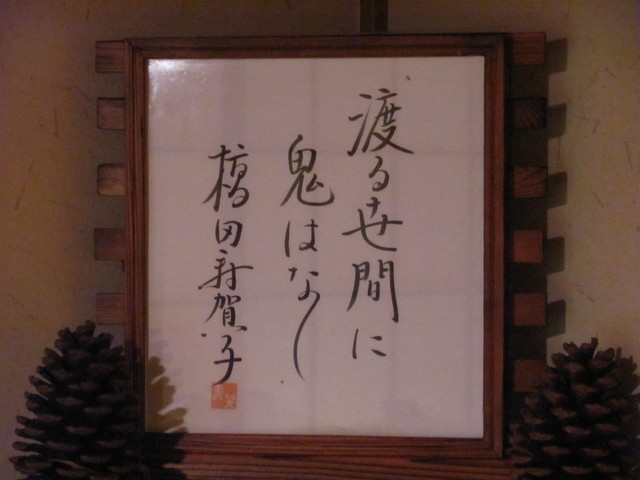 渡る世間に
鬼はなし
橋田寿賀子